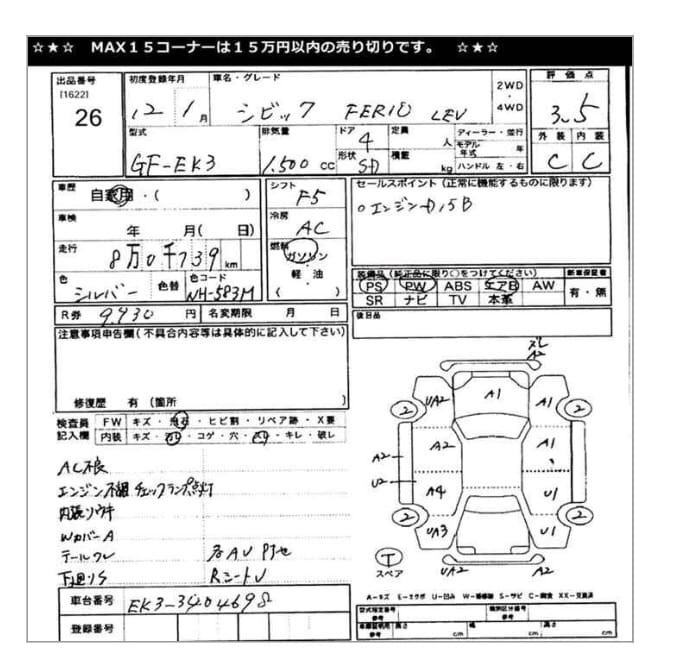 ☆★☆ MAX15コーナーは15万円以内の売り切りです。 ☆★☆
出品番号 初度登録年月 車名・グレード 2WD 評価点
[1622]
26 12 / 1月 シビック FERIO LEV ・ 4WD 3.5
型式 排気量 ドア 4 定員 人 ディーラー・並行 外装 内装
モデル年式 年
GF-EK3 1.500 cc 形状 SD 積載 kg ハンドル 左・右 C C
車歴 自家用・( ) シフト F5 セールスポイント (正常に機能するものに限ります)
車検 年 月( 日) 冷房 AC oエンジンD15B
走行 8万0千739 km 燃料 ガソリン
軽油
( )
色 シルバー 色替 色コード NH-583M
装備品 (純正品に限り○をつけてください) 新車保証書
PS PW ABS エアB AW 有・無
SR ナビ TV 本革
R券 9,930 円 名変期限 月 日 後日品
注意事項申告欄(不具合内容等は具体的に記入して下さい)
修復歴 有 (箇所 )
検査員記入欄 FW キズ・飛石・ヒビ割・リペア跡・X要
内装 キズ・・コゲ・穴・・キレ・破レ
AC不良
エンジン不調 チェックランプ点灯
内張ソウキ
WカバーA
テールワレ
下廻りS RシートU
車台番号 EK3-3404698
登録番号
ズレ
A2
UA2 A1 A1
2 2
A2 A2 A1
U2 A4 U1
2 UA3 U1 2
T
スペア UA2 A2
A-キズ E-エクボ U-凹み W-補修跡 S-サビ C-腐食 XX-交換済
型式指定番号 類別区分番号
参考 参考
車庫証明用 長さ 幅 高さ
参考 cm cm cm